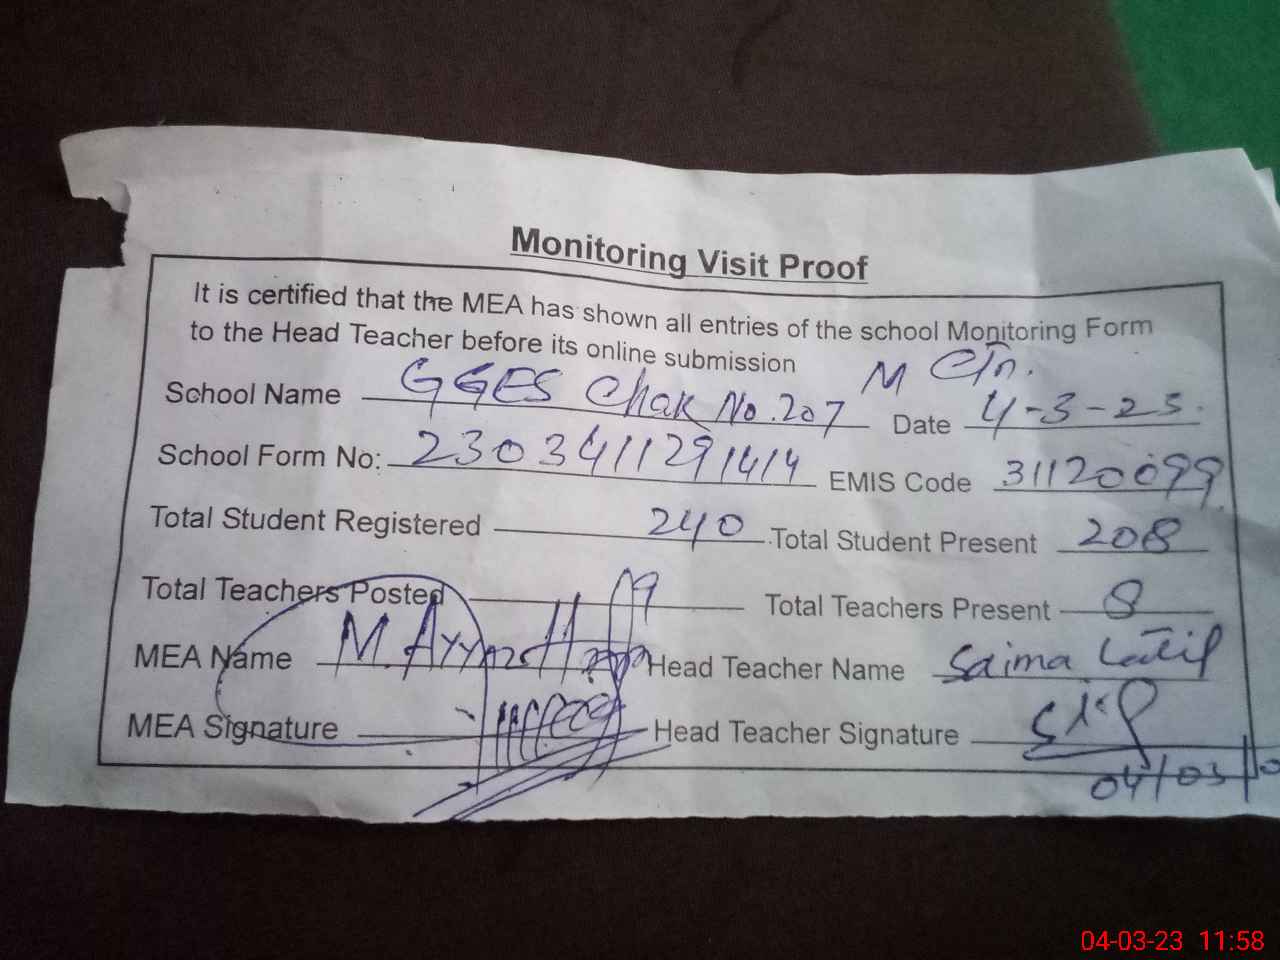 Monitoring Visit Proof
It is certified that the MEA has shown all entries of the school Monitoring Form
to the Head Teacher before its online submission
School Name GGES Chak No. 207 M Date 4-3-23.
School Form No: 2303411291414 EMIS Code 31120099
Total Student Registered 240 Total Student Present 208
Total Teachers Posted 9 Total Teachers Present 8
MEA Name M. Head Teacher Name Saima Latif
MEA Signature Head Teacher Signature
04/03/
04-03-23 11:58